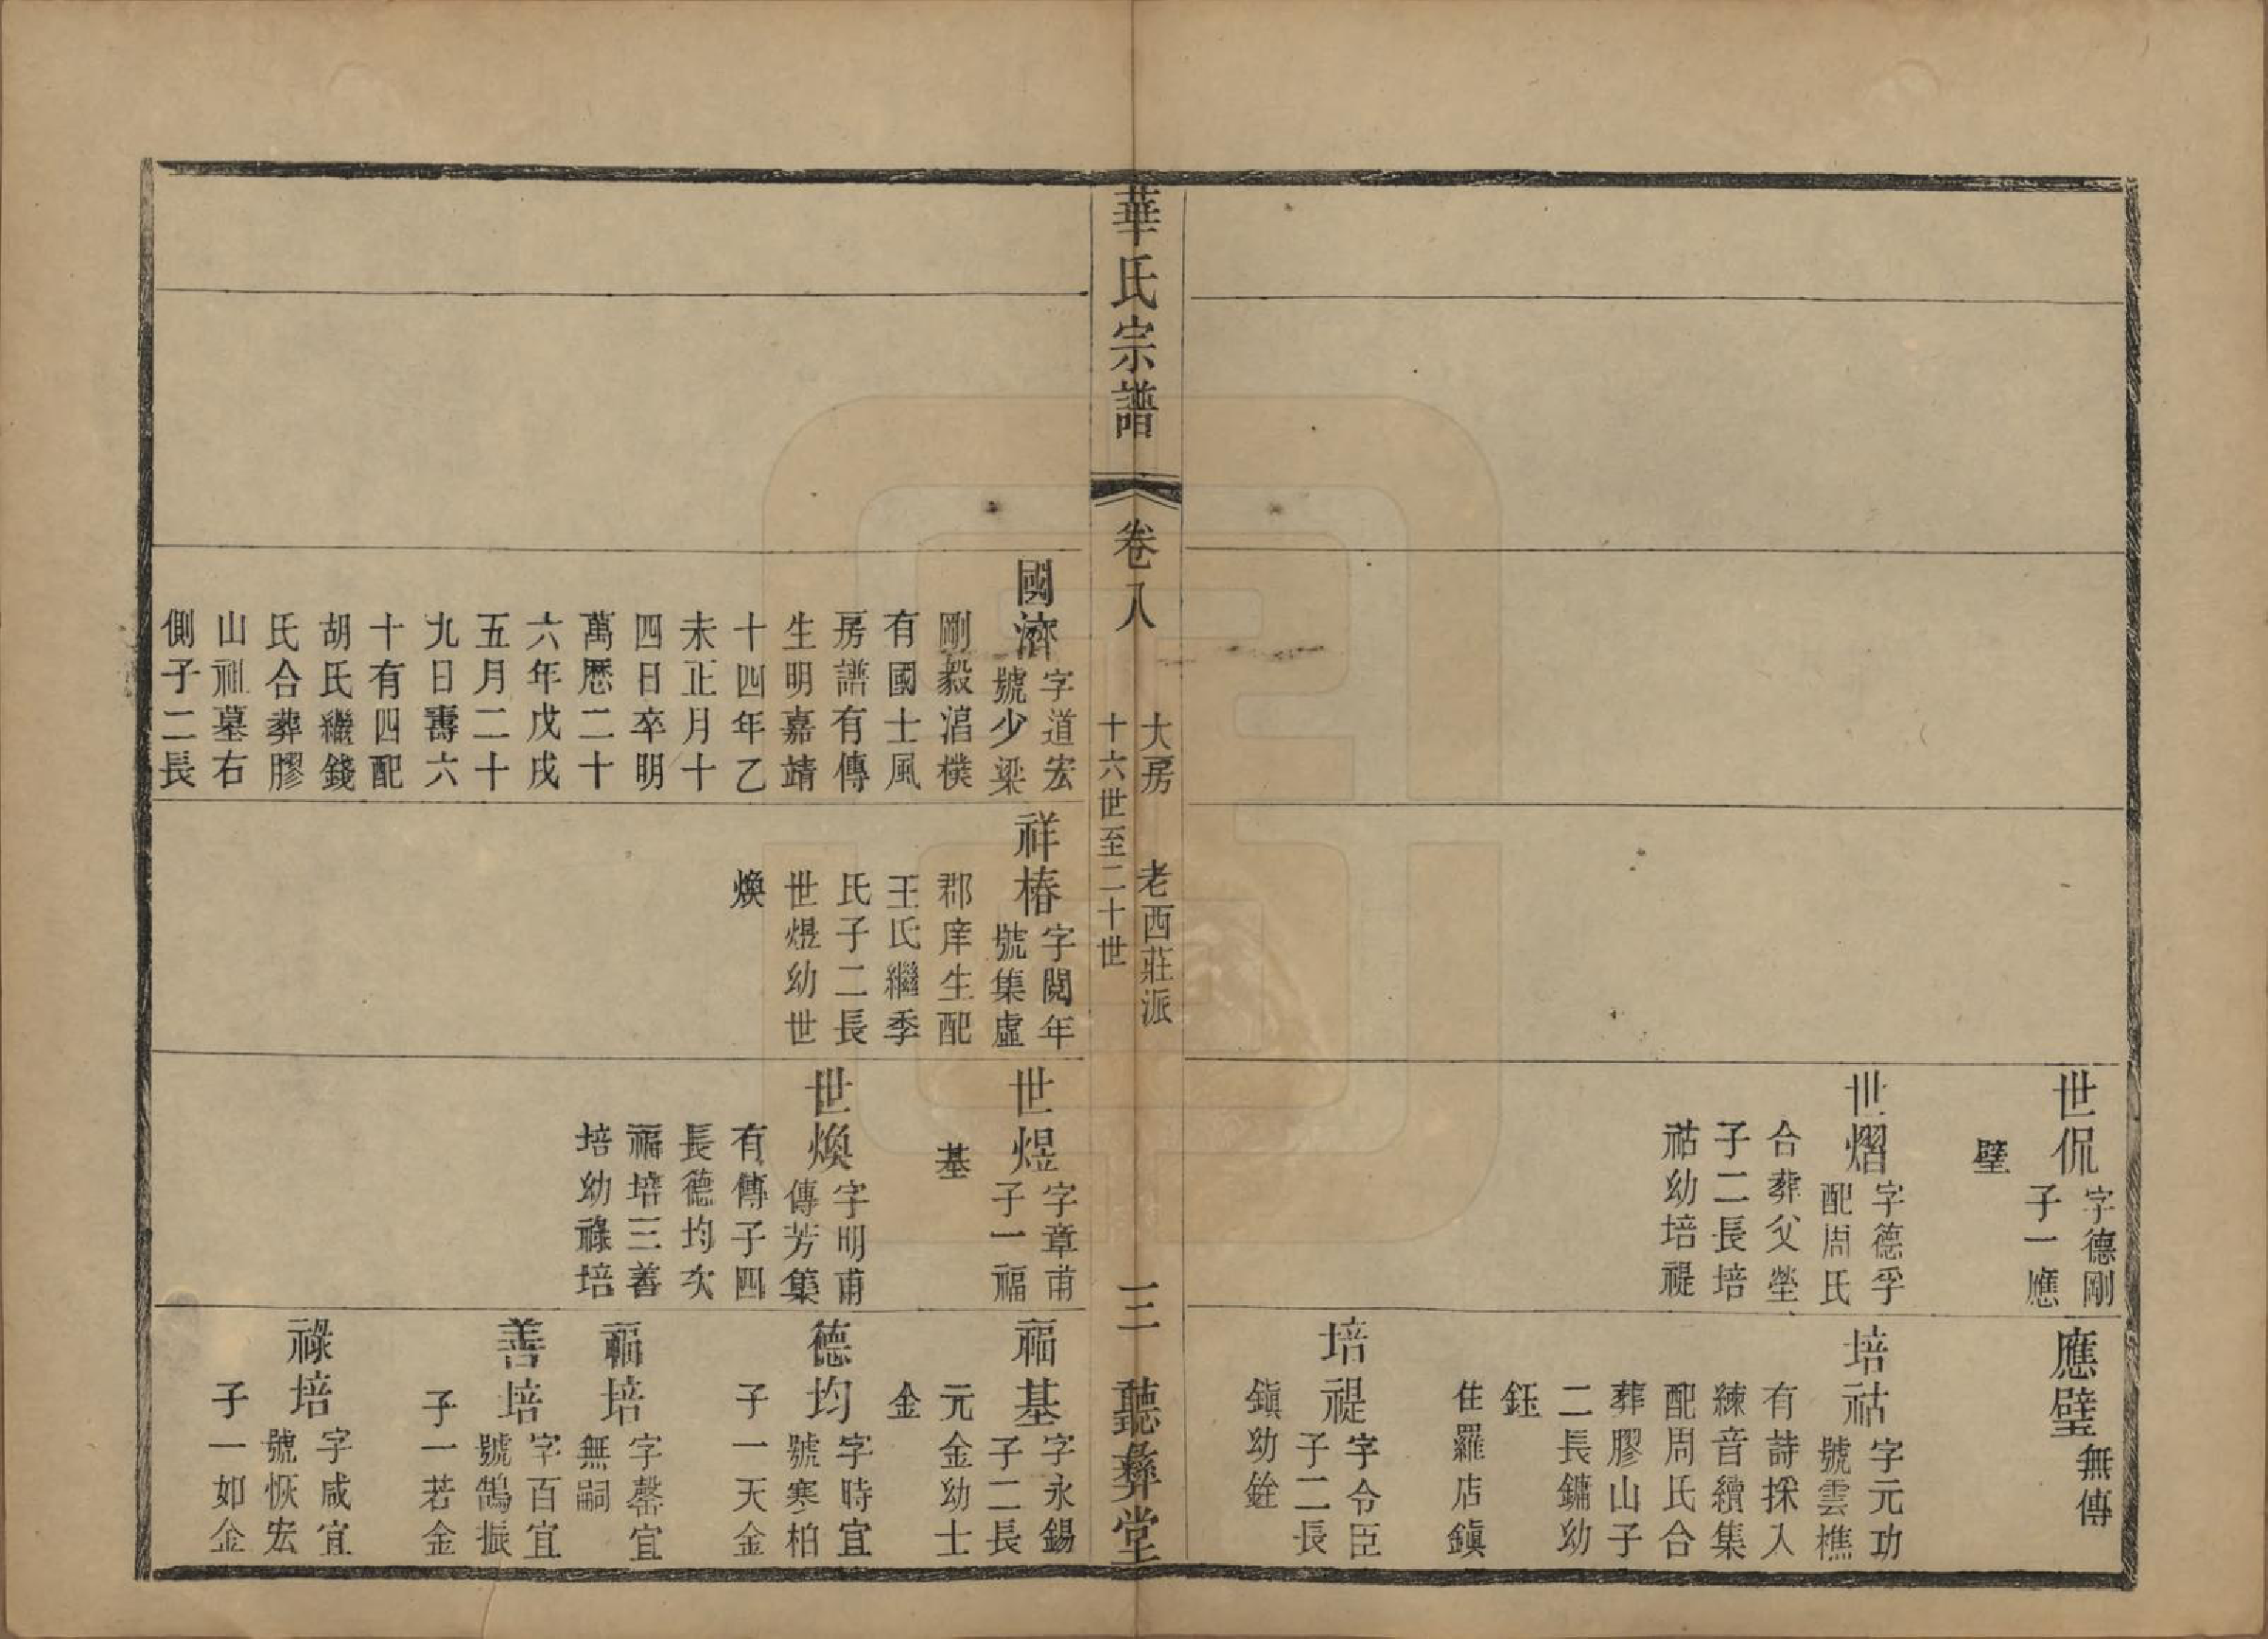 世侃
字德剛
子一應
璧
世熠
字德孚
配周氏
合葬父塋
子二長培
祜幼培禔
應璧
無傳
培祜
字元功
號雲樵
有詩採入
練音續集
配周氏合
葬膠山子
二長鏞幼
鈺
住羅店鎮
培禔
字令臣
子二長
鎮幼銓
華氏宗譜
卷八
大房 老西莊派
十六世至二十世
三
聽彝堂
國濟
字道宏
號少梁
剛毅淐樸
有國士風
房譜有傳
生明嘉靖
十四年乙
未正月十
四日卒明
萬曆二十
六年戊戌
五月二十
九日壽六
十有四配
胡氏繼錢
氏合葬膠
山祖墓右
側子二長
祥椿
字閱年
號集虛
郡庠生配
王氏繼季
氏子二長
世煜幼世
煥
世煜
字章甫
子一福
基
世煥
字明甫
傳芳集
有傳子四
長德均次
福培三善
培幼祿培
福基
字永錫
子二長
元金幼士
金
德均
字時宜
號寒柏
子一天金
福培
字罄宜
無嗣
善培
字百宜
號鵠振
子一若金
祿培
字咸宜
號恢宏
子一如金